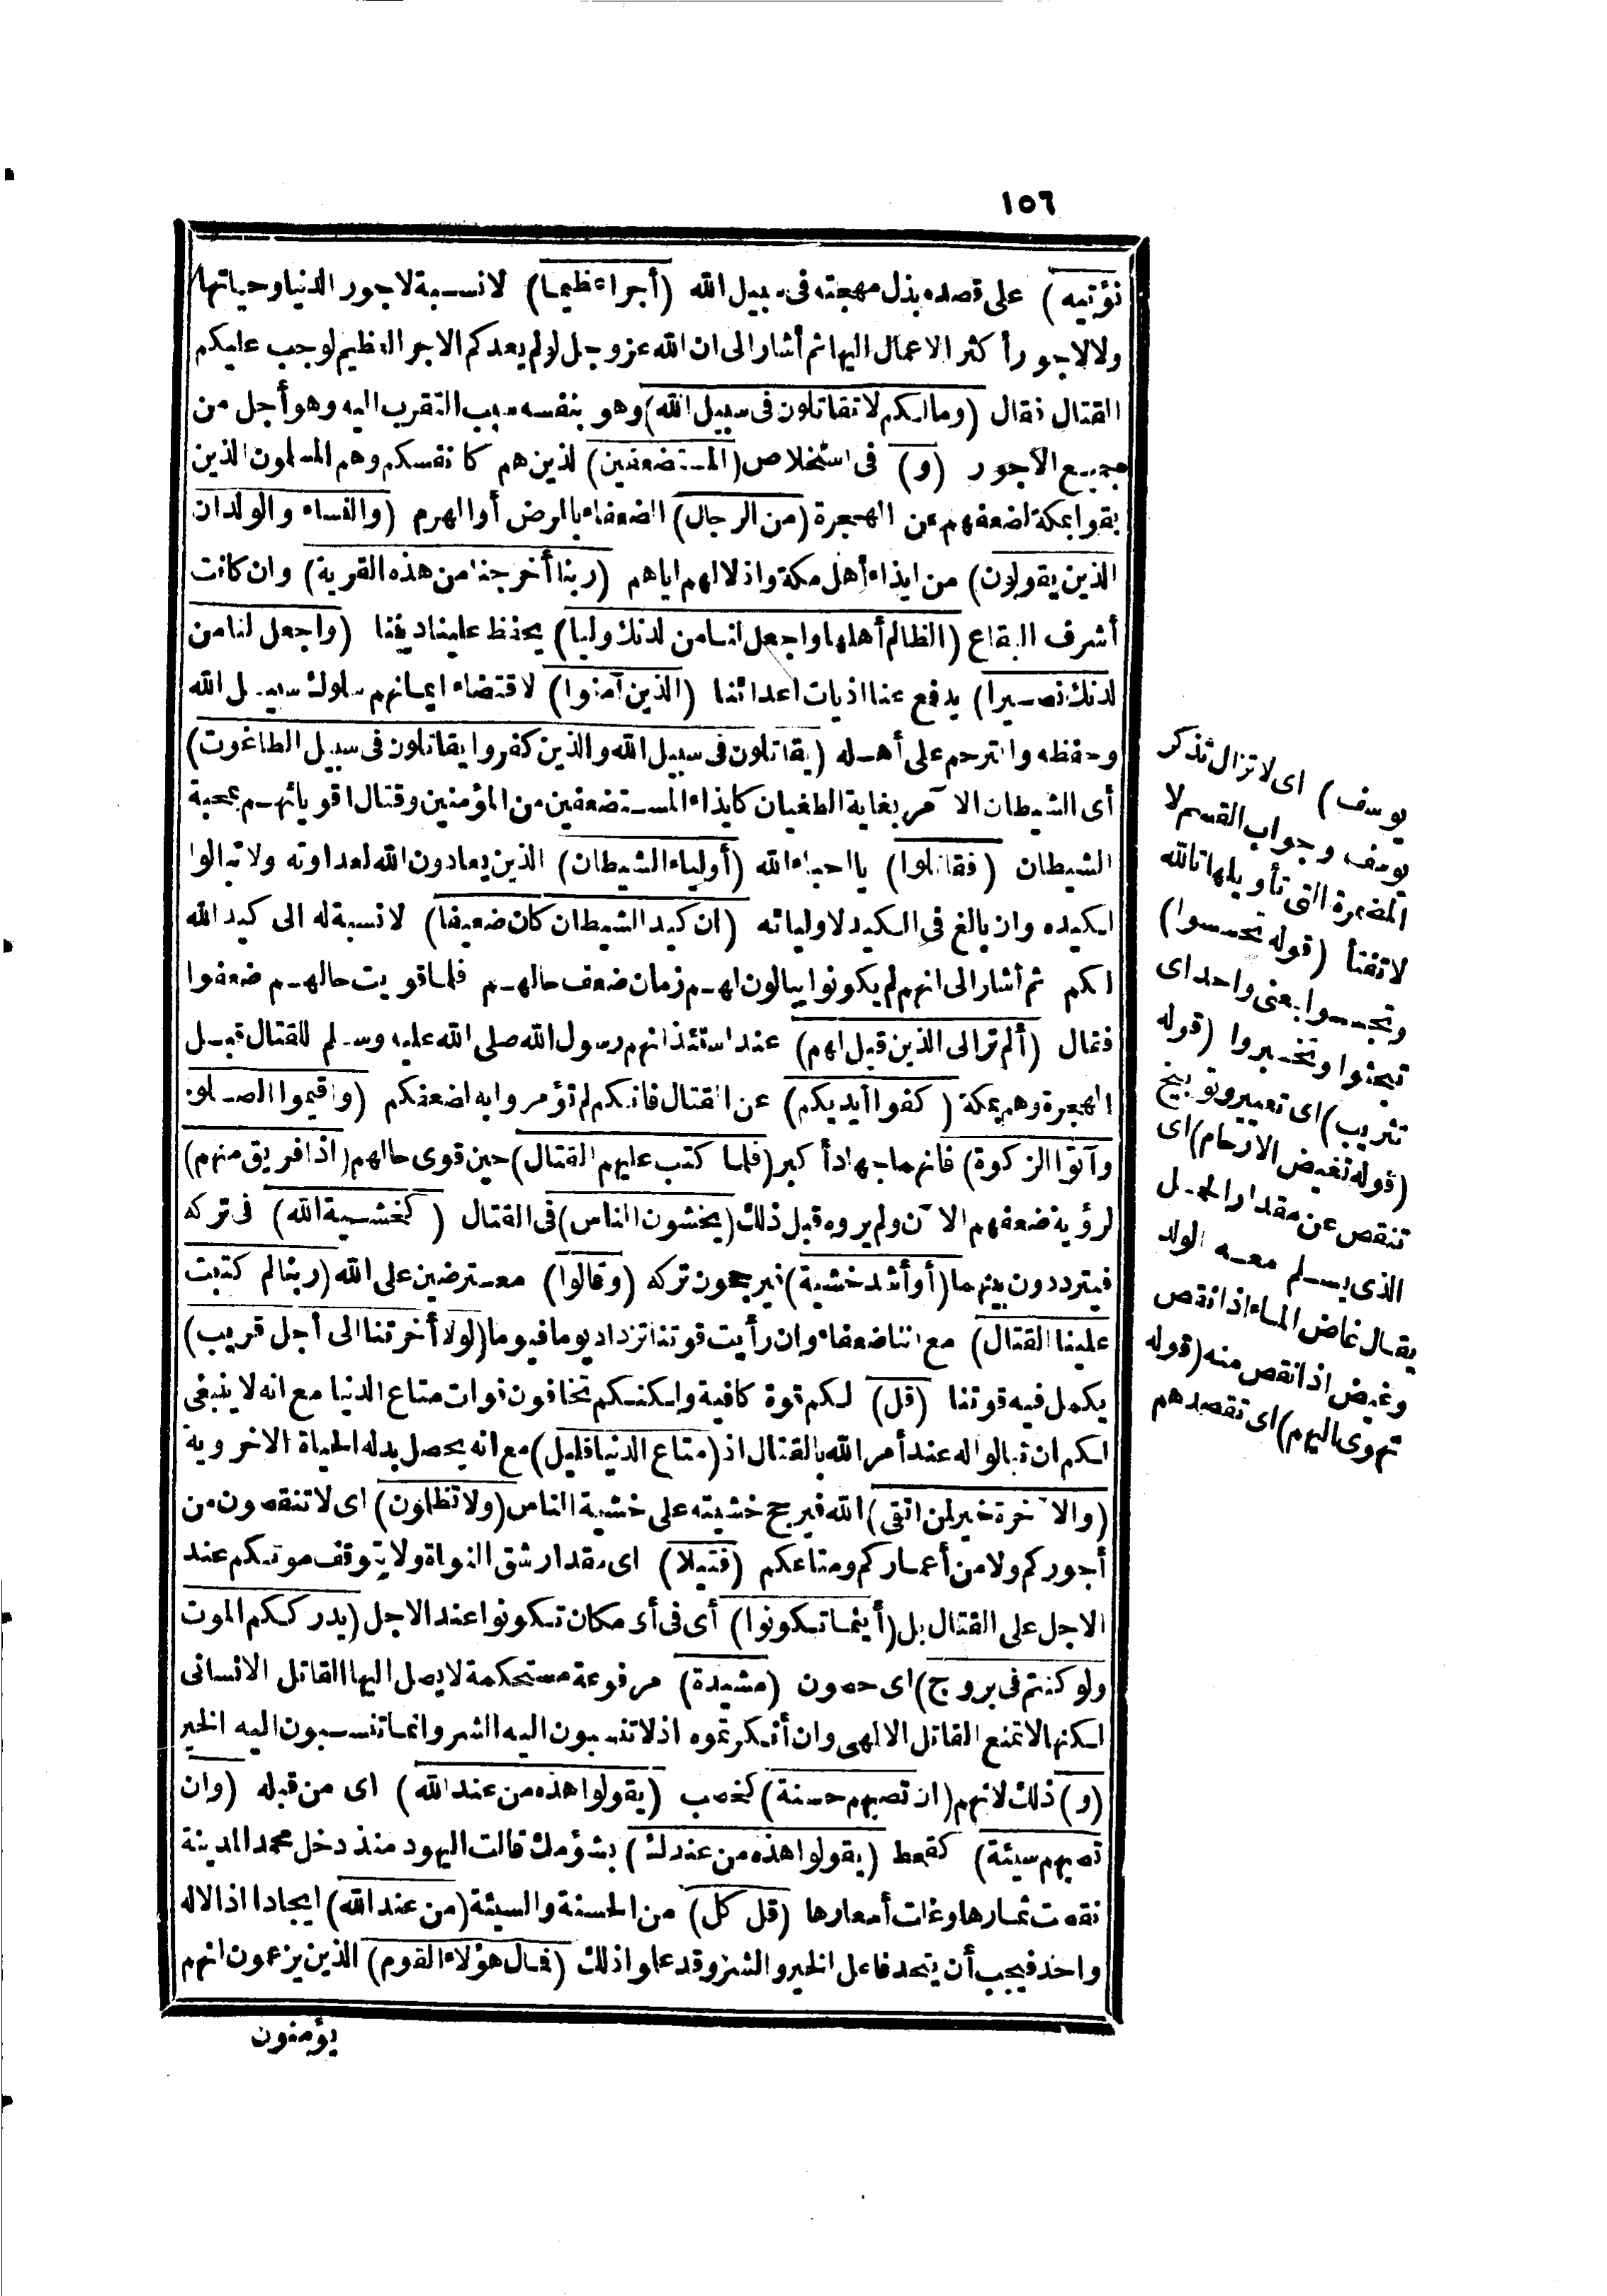 ١٥٦
نؤتيه) على قصده بذل مهجته فى سبيل الله (أجرا عظيما) لا نسبة لاجور الدنيا وحياتها
ولا لاجور أكثر الاعمال اليها ثم أشار الى ان الله عز وجل لو لم يعدكم الاجر العظيم لوجب عليكم
القتال فقال (وما لكم لا تقاتلون فى سبيل الله) وهو بنفسه سبب التقرب اليه وهو أجل من
جميع الاجور (و) فى استخلاص (المستضعفين) لذين هم كا نفسكم وهم المسلمون الذين
بقوا بمكة لضعفهم عن الهجرة (من الرجال) الضعفاء بالمرض أو الهرم (والنساء والولدان
الذين يقولون) من ايذاء أهل مكة واذلالهم اياهم (ربنا أخرجنا من هذه القرية) وان كانت
أشرف البقاع (الظالم أهلها واجعل لنا من لدنك وليا) يحفظ علينا ديننا (واجعل لنا من
لدنك نصيرا) يدفع عنا اذيات اعدائنا (الذين آمنوا) لاقتضاء ايمانهم سلوك سبيل الله
وحفظه والترحم على أهله (يقاتلون فى سبيل الله والذين كفروا يقاتلون فى سبيل الطاغوت)
أى الشيطان الآمر بغاية الطغيان كايذاء المستضعفين من المؤمنين وقتال اقويائهم بمحبة
الشيطان (فقاتلوا) يا احباء الله (أولياء الشيطان) الذين يعادون الله لعداوته ولا تبالوا
لكيده وان بالغ فى الكيد لاوليائه (ان كيد الشيطان كان ضعيفا) لا نسبة له الى كيد الله
لكم ثم أشار الى انهم لم يكونوا يبالون لهم زمان ضعف حالهم فلما قويت حالهم ضعفوا
فقال (ألم تر الى الذين قيل لهم) عند استئذانهم رسول الله صلى الله عليه وسلم للقتال قبل
الهجرة وهم بمكة (كفوا أيديكم) عن القتال فانكم لم تؤمروا به لضعفكم (واقيموا الصلوة
وآتوا الزكوة) فانهما جهاد أكبر (فلما كتب عليهم القتال) حين قوى حالهم (اذا فريق منهم)
لرؤية ضعفهم الآن ولم يروه قبل ذلك (يخشون الناس) فى القتال (كخشية الله) فى تركه
فيترددون بينهما (أو أشد خشية) فيرجحون تركه (وقالوا) معترضين على الله (ربنا لم كتبت
علينا القتال) مع اننا ضعفاء وان رأيت قوتنا تزداد يوما فيوما (لولا أخرتنا الى أجل قريب)
يكمل فيه قوتنا (قل) لكم قوة كافية ولكنكم تخافون فوات متاع الدنيا مع انه لا ينبغى
لكم ان تبالوا له عند أمر الله بالقتال اذ (متاع الدنيا قليل) مع انه يحصل بدله الحياة الاخروية
(والآخرة خير لمن اتقى) الله فيرجح خشيته على خشية الناس (ولا تظلمون) اى لا تنقصون من
أجوركم ولا من أعماركم ومتاعكم (فتيلا) اى مقدار شق النواة ولا يتوقف موتكم عند
الاجل على القتال بل (أينما تكونوا) أى فى أى مكان تكونوا عند الاجل (يدرككم الموت
ولو كنتم فى بروج) اى حصون (مشيدة) مرفوعة مستحكمة لا يصل اليها القاتل الانسانى
لكنها لا تمنع القاتل الالهى وان أنكرتموه اذ لا تنسبون اليه الشر وانما تنسبون اليه الخير
(و) ذلك لانهم (ان تصبهم حسنة) كخصب (يقولوا هذه من عند الله) اى من قبله (وان
تصبهم سيئة) كقحط (يقولوا هذه من عندك) بشؤمك قالت اليهود منذ دخل محمد المدينة
نقصت ثمارها وغلت أسعارها (قل كل) من الحسنة والسيئة (من عند الله) ايجادا اذ لا اله
واحد فيجب أن يتحد فاعل الخير والشر وقد علموا ذلك (فمال هؤلاء القوم) الذين يزعمون انهم
يؤمنون
يوسف) اى لا تزال تذكر
يوسف وجواب القسم لا
المضمرة التى تأويلها تالله
لا تفتأ (قوله تحسسوا)
وتجسسوا بمعنى واحد اى
تبحثوا وتخبروا (قوله
تثريب) اى تعيير وتوبيخ
(قوله تغيض الارحام) اى
تنقص عن مقدار الحمل
الذى يسلم معه الولد
يقال غاض الماء اذا نقص
وغيض اذا نقص منه (قوله
تهوى اليهم) اى تقصدهم